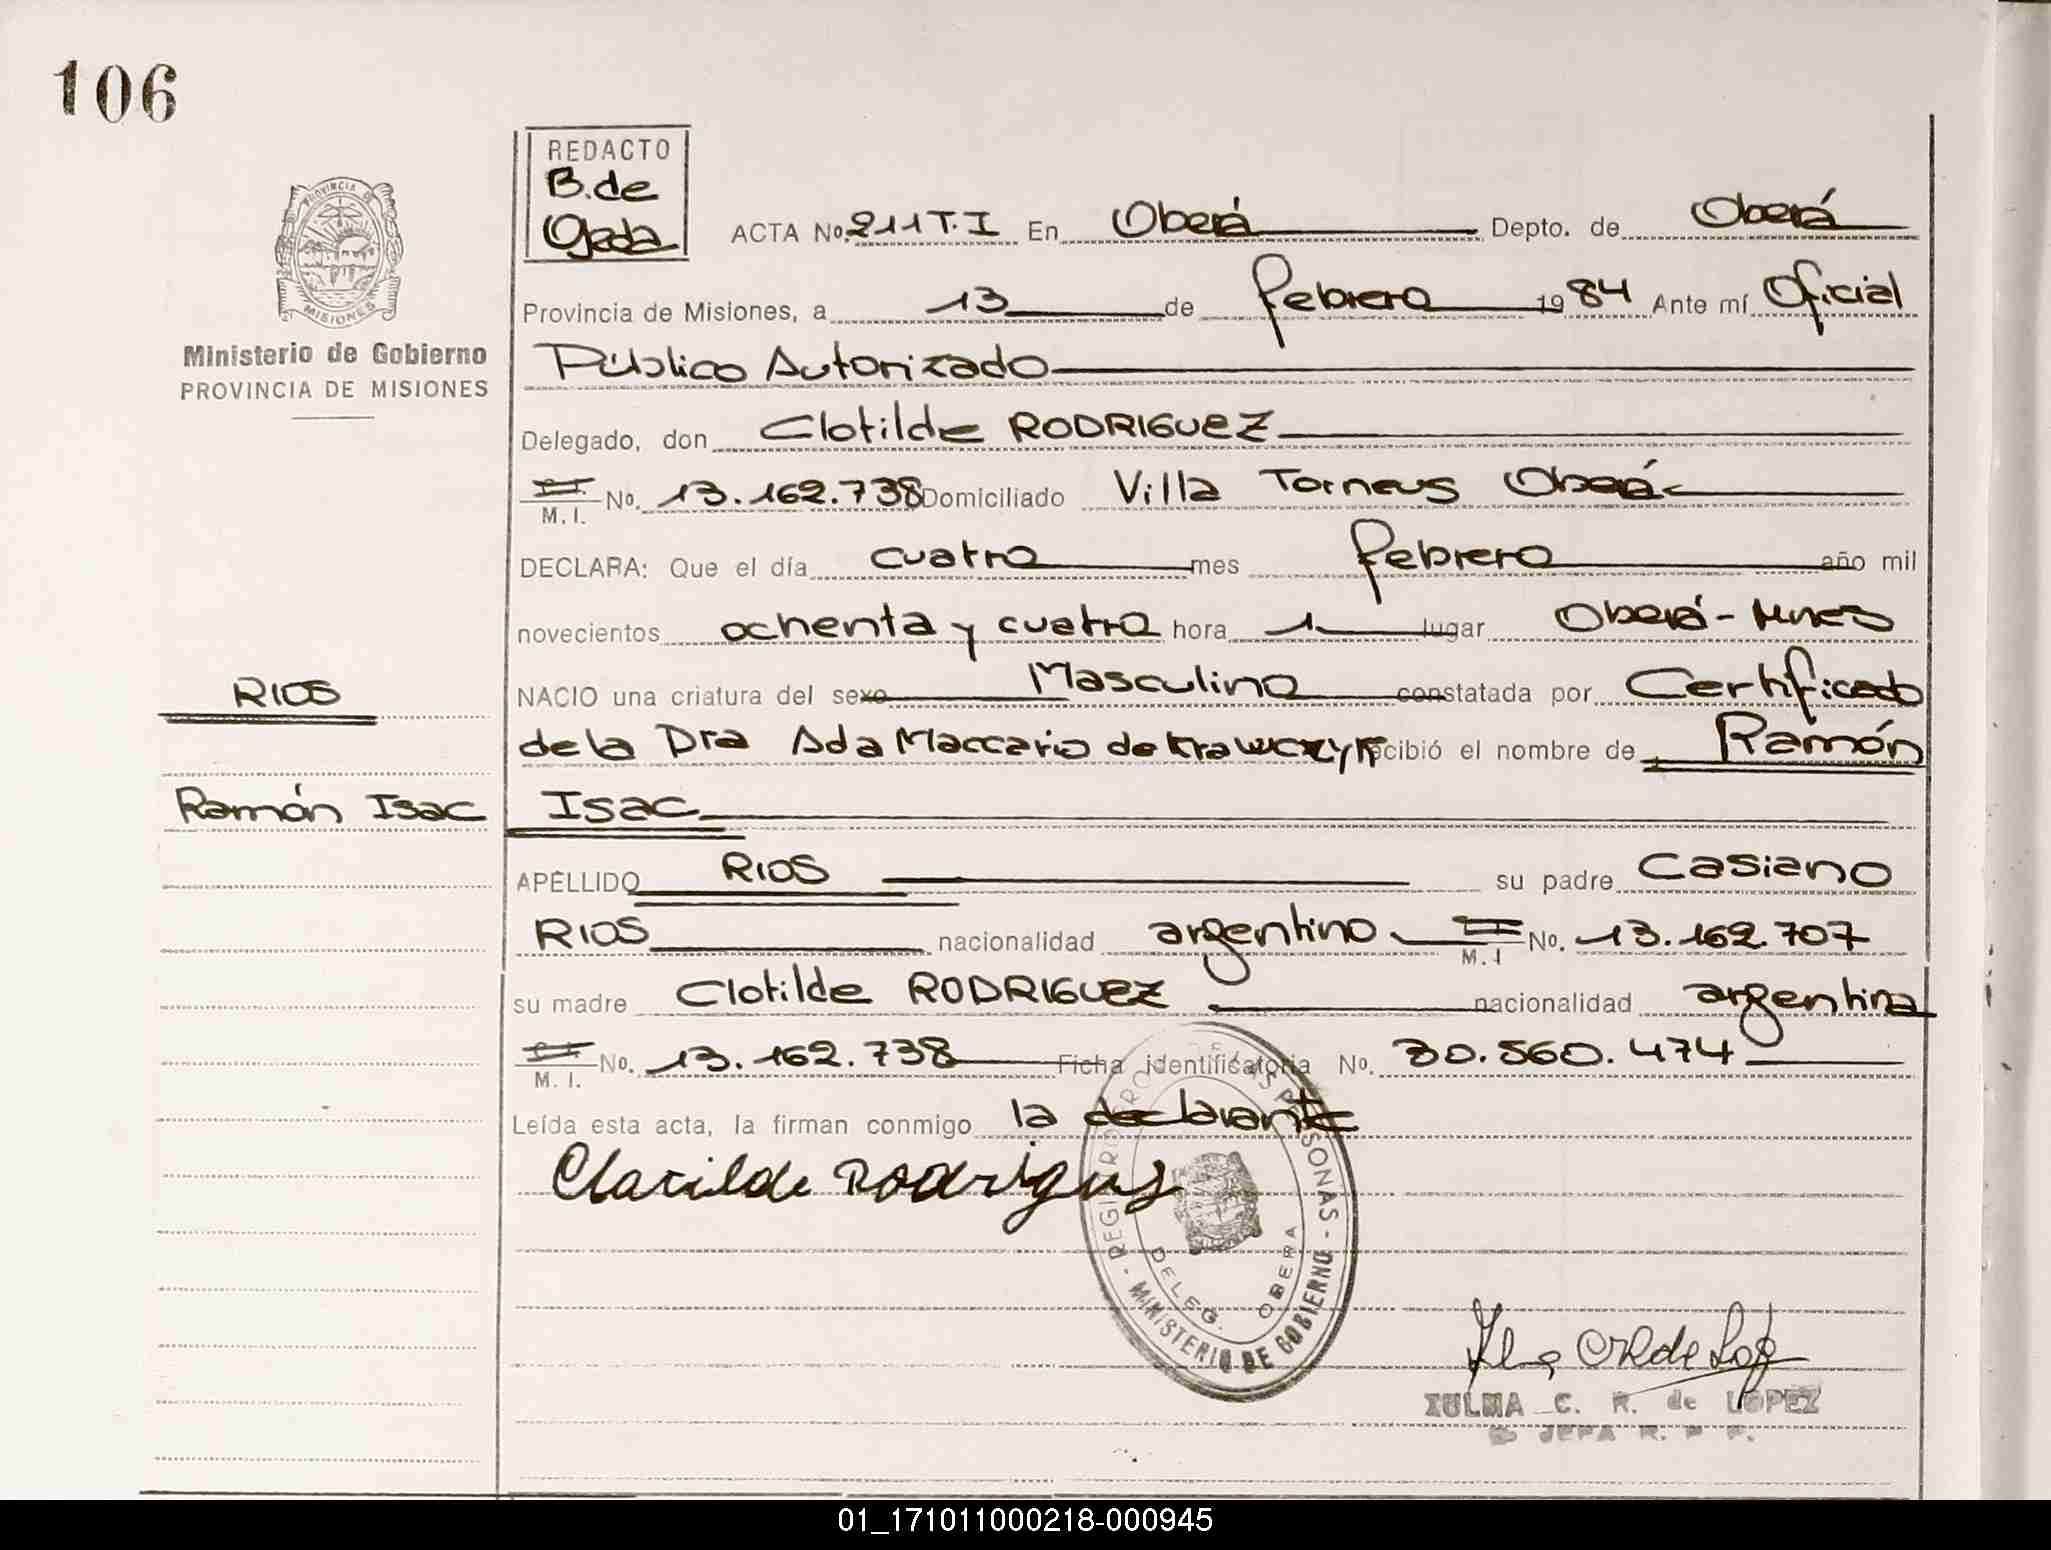 106
REDACTO
B. de
Ojeda
ACTA No. 211 T. I En Oberá Depto. de Oberá
PROVINCIA DE MISIONES
Provincia de Misiones, a 13 de febrero 1984 Ante mí Oficial
Ministerio de Gobierno
PROVINCIA DE MISIONES
Público Autorizado
Delegado, don Clotilde RODRIGUEZ
M. I. No. 13.162.738 Domiciliado Villa Torneus Oberá
DECLARA: Que el día cuatro mes febrero año mil
novecientos ochenta y cuatro hora 1 lugar Oberá - Mnes
RIOS
NACIO una criatura del sexo Masculino constatada por Certificado
de la Dra Ada Maccario de Krawczyk recibió el nombre de Ramón
Ramón Isac
Isac
APELLIDO RIOS su padre Casiano
RIOS nacionalidad argentino M. I No. 13.162.707
su madre Clotilde RODRIGUEZ nacionalidad argentina
M. I. No. 13.162.738 Ficha identificatoria No. 30.560.474
Leída esta acta, la firman conmigo la declarante
Clotilde Rodriguez
REGISTRO DE LAS PERSONAS - MINISTERIO DE GOBIERNO -
DELEG. OBERA
ZULMA C. R. de LOPEZ
JEFA R. P. P.
01_171011000218-000945